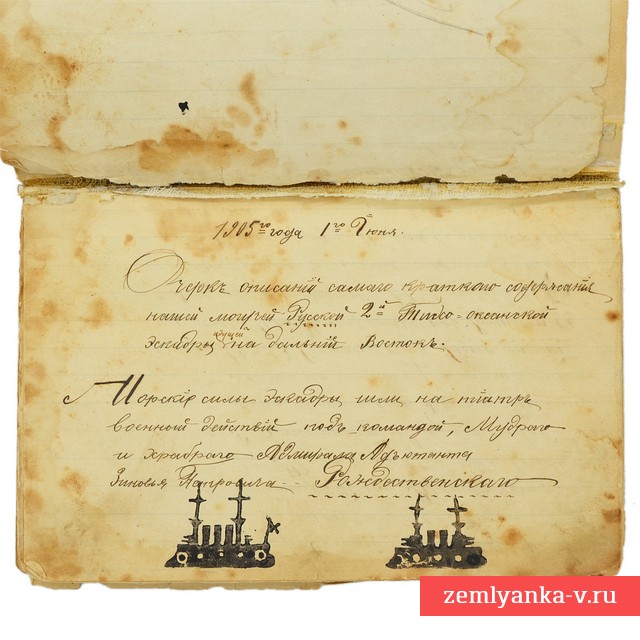 1905го года 1го Июня.
Очеркъ описаній самаго краткаго содержанія
нашей могучей Русской 2й Тихо-океанской
идущей
эскадры на дальній Востокъ.
Морскія силы эскадры шли на тіатръ
военный действій подъ командой, Мудраго
и храбраго Адмирала Адъютанта
Зиновья Петровича Рождественскаго
zemlyanka-v.ru